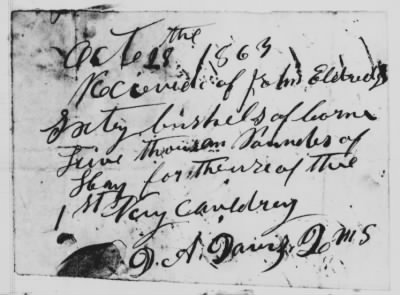 Octe 28 the 1863
Recieved of John Eldred
Sixtey bushels of corne
Five thousan Pounds of
Hay for the use of the
1 st Nery Cauldrey
D. A. Davis Q M S